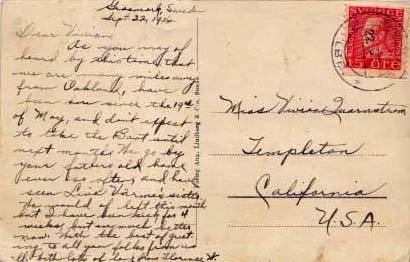 Grasmark, Sweden
Sept. 22, 1926.
Dear Vivian
As you may of
heard by this time that
we are many miles away
from Oakland, have
been here since the 19th
of May, and don't expect
to take the Boat until
next month. We go by
your fathers old home
ever so often, and have
seen Lina sister
As would of left this month
but I have been sick for 4
weeks, but am much better
now. With the best of greet-
ing to all your folks from us
all both lots of love from Florence W.
Miss Vivian
Templeton
California
U.S.A.
SVERIGE
15 ÖRE